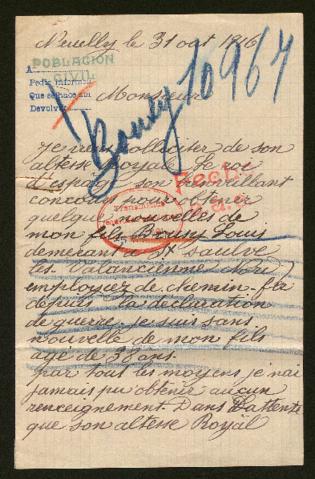 Neuilly le 31 oat 1916
POBLACION
CIVIL
A
Pedir inform
Que se hace
Devolver
Bouny 10964
Monsieur
Je viens solliciter de son
altesse Royale Le roi
d'espagne son bienveillant
concours pour obtenir
quelque nouvelles de
mon fils Bouny Louis
demeurant a St Saulve
les Valanciennes Nord
employez de chemin-fer
depuis la declaration
de guerre je suis sans
nouvelle de mon fils
age de 33 ans.
par tous les moyens je n'ai
jamais pu obtenir aucun
renseignement. Dans L'attente
que son altesse Royal